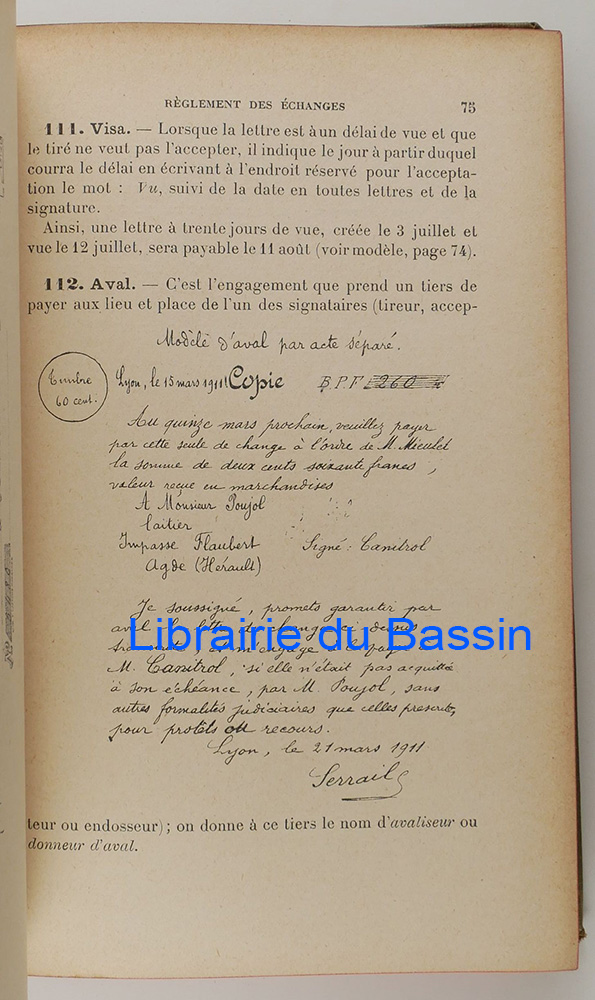 RÈGLEMENT DES ÉCHANGES 75
111. Visa. — Lorsque la lettre est à un délai de vue et que
le tiré ne veut pas l'accepter, il indique le jour à partir duquel
courra le délai en écrivant à l'endroit réservé pour l'accepta-
tion le mot : Vu, suivi de la date en toutes lettres et de la
signature.
Ainsi, une lettre à trente jours de vue, créée le 3 juillet et
vue le 12 juillet, sera payable le 11 août (voir modèle, page 74).
112. Aval. — C'est l'engagement que prend un tiers de
payer aux lieu et place de l'un des signataires (tireur, accep-
Modèle d'aval par acte séparé.
Timbre
60 cent.
Lyon, le 15 mars 1911 Copie B.P.F. 260
Au quinze mars prochain, veuillez payer
par cette seule de change à l'ordre de M. Mieulet
la somme de deux cents soixante francs,
valeur reçue en marchandises
A Monsieur Poujol
laitier
Impasse Flaubert Signé : Canitrol
Agde (Hérault)
Je soussigné, promets garantir par
aval la lettre de change ci-dessus
Librairie du Bassin
M. Canitrol, si elle n'était pas acquittée
à son échéance, par M. Poujol, sans
autres formalités judiciaires que celles prescrites
pour protêts ou recours.
Lyon, le 21 mars 1911
Serrail
teur ou endosseur); on donne à ce tiers le nom d'avaliseur ou
donneur d'aval.